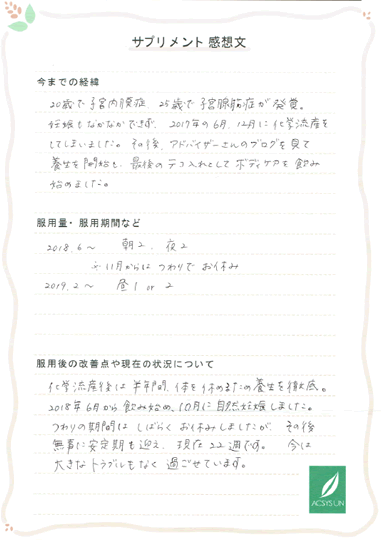 サプリメント 感想文
今までの経緯
20歳で子宮内膜症、25歳で子宮腺筋症が発覚。
妊娠もなかなかできず、2017年の6月、12月に化学流産を
してしまいました。その後、アドバイザーさんのブログを見て
養生を開始し、最後のテコ入れとしてボディケアを飲み
始めました。
服用量・服用期間など
2018.6〜 朝2、夜2
※11月からはつわりでお休み
2019.2〜 昼1 or 2
服用後の改善点や現在の状況について
化学流産後は半年間、体を休めるため養生を徹底。
2018年6月から飲み始め、10月に自然妊娠しました。
つわりの期間はしばらくお休みしましたが、その後
無事に安定期も迎え、現在22週です。 今は
大きなトラブルもなく過ごせています。
ACSYSUN